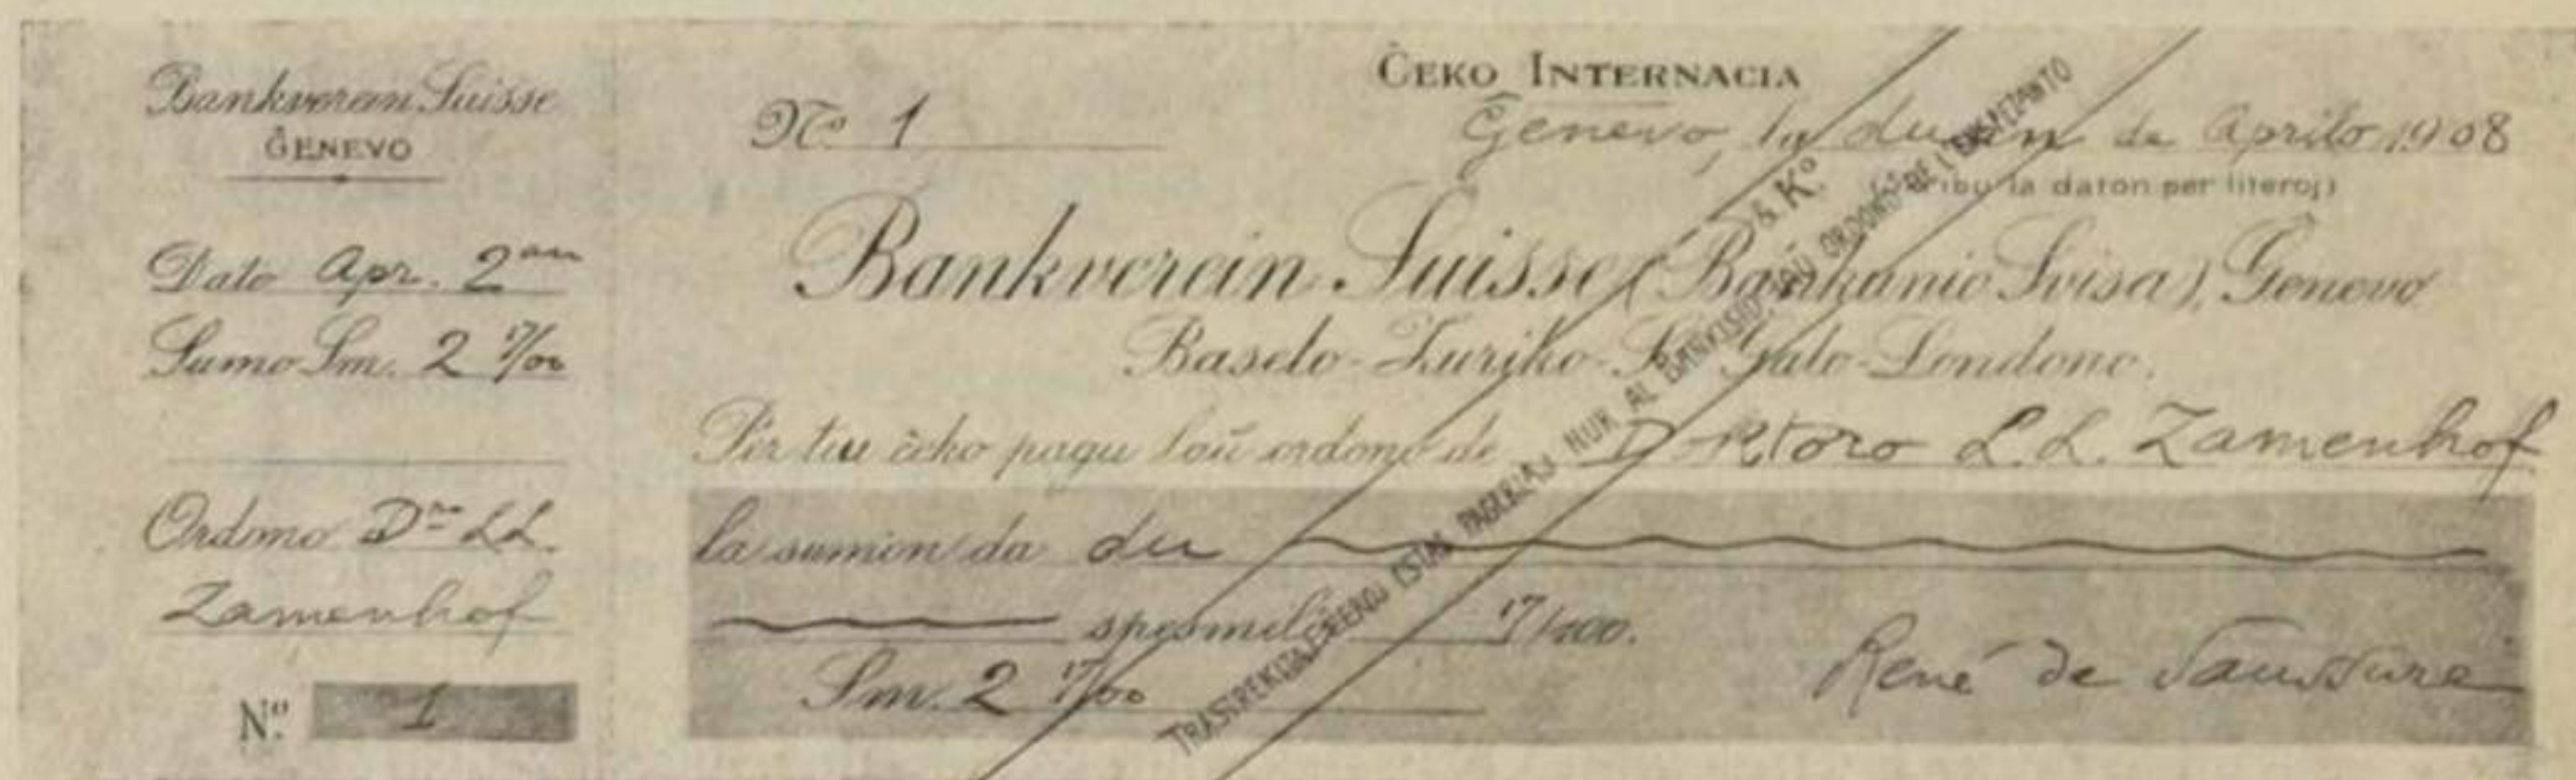 Bankverein Suisse
ĜENEVO
Dato Apr. 2an
Sumo Sm. 2 17/00
Ordono Dro L.L.
Zamenhof
No. 1
ĈEKO INTERNACIA
No 1
Ĝenevo, la duan de Aprilo 1908
la daton per literoj)
Bankverein Suisse (Bankunio Svisa), Ĝenevo
Baselo-Zuriko-St Galo-Londono.
Per tiu ĉeko pagu laŭ ordono de Doktoro L.L. Zamenhof
la sumon da du
spesmiloj 17/100.
Sm. 2 17/00
René de Saussure
& Ko.
TRASTREKITAJ ĈEKOJ ESTAS PAGEBLAJ NUR AL BANKISTO, LAŬ ORDONO DE L' ESPERANTO